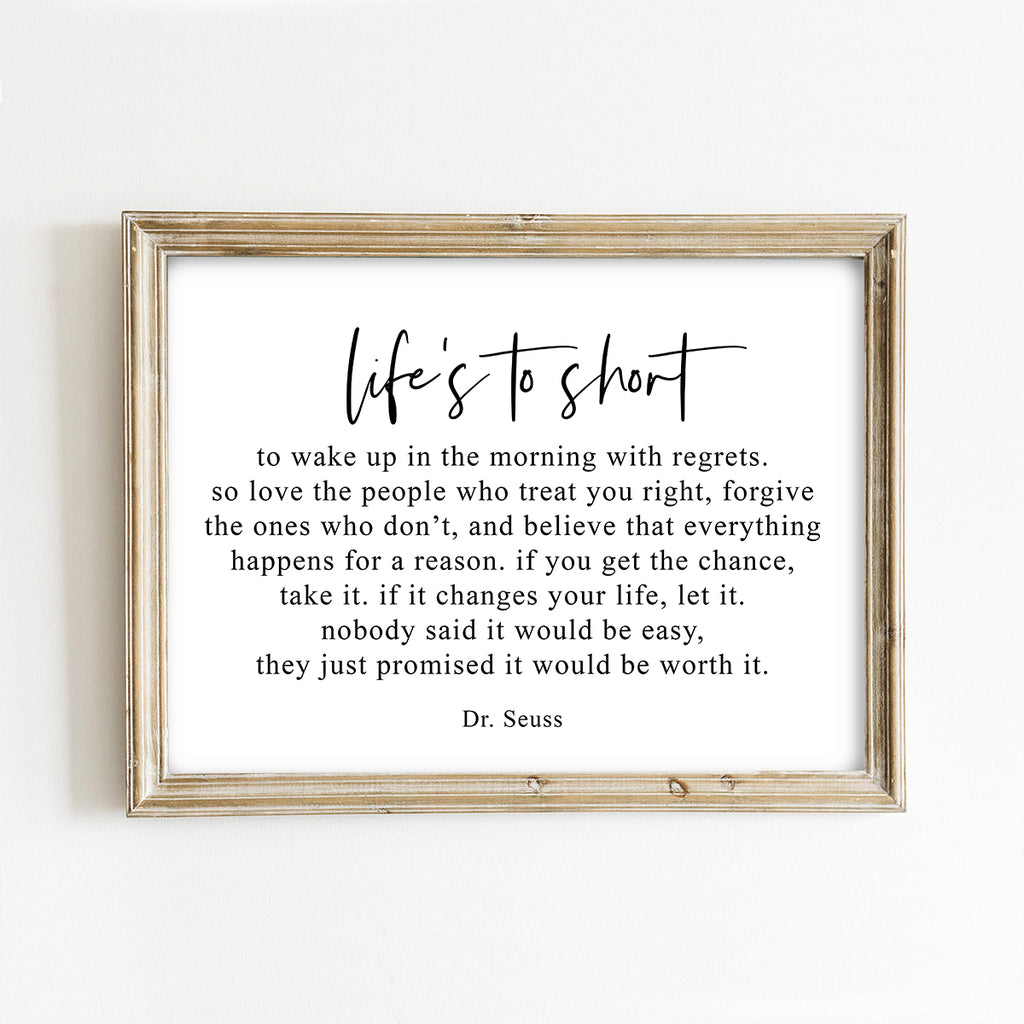 life's to short
to wake up in the morning with regrets.
so love the people who treat you right, forgive
the ones who don’t, and believe that everything
happens for a reason. if you get the chance,
take it. if it changes your life, let it.
nobody said it would be easy,
they just promised it would be worth it.
Dr. Seuss